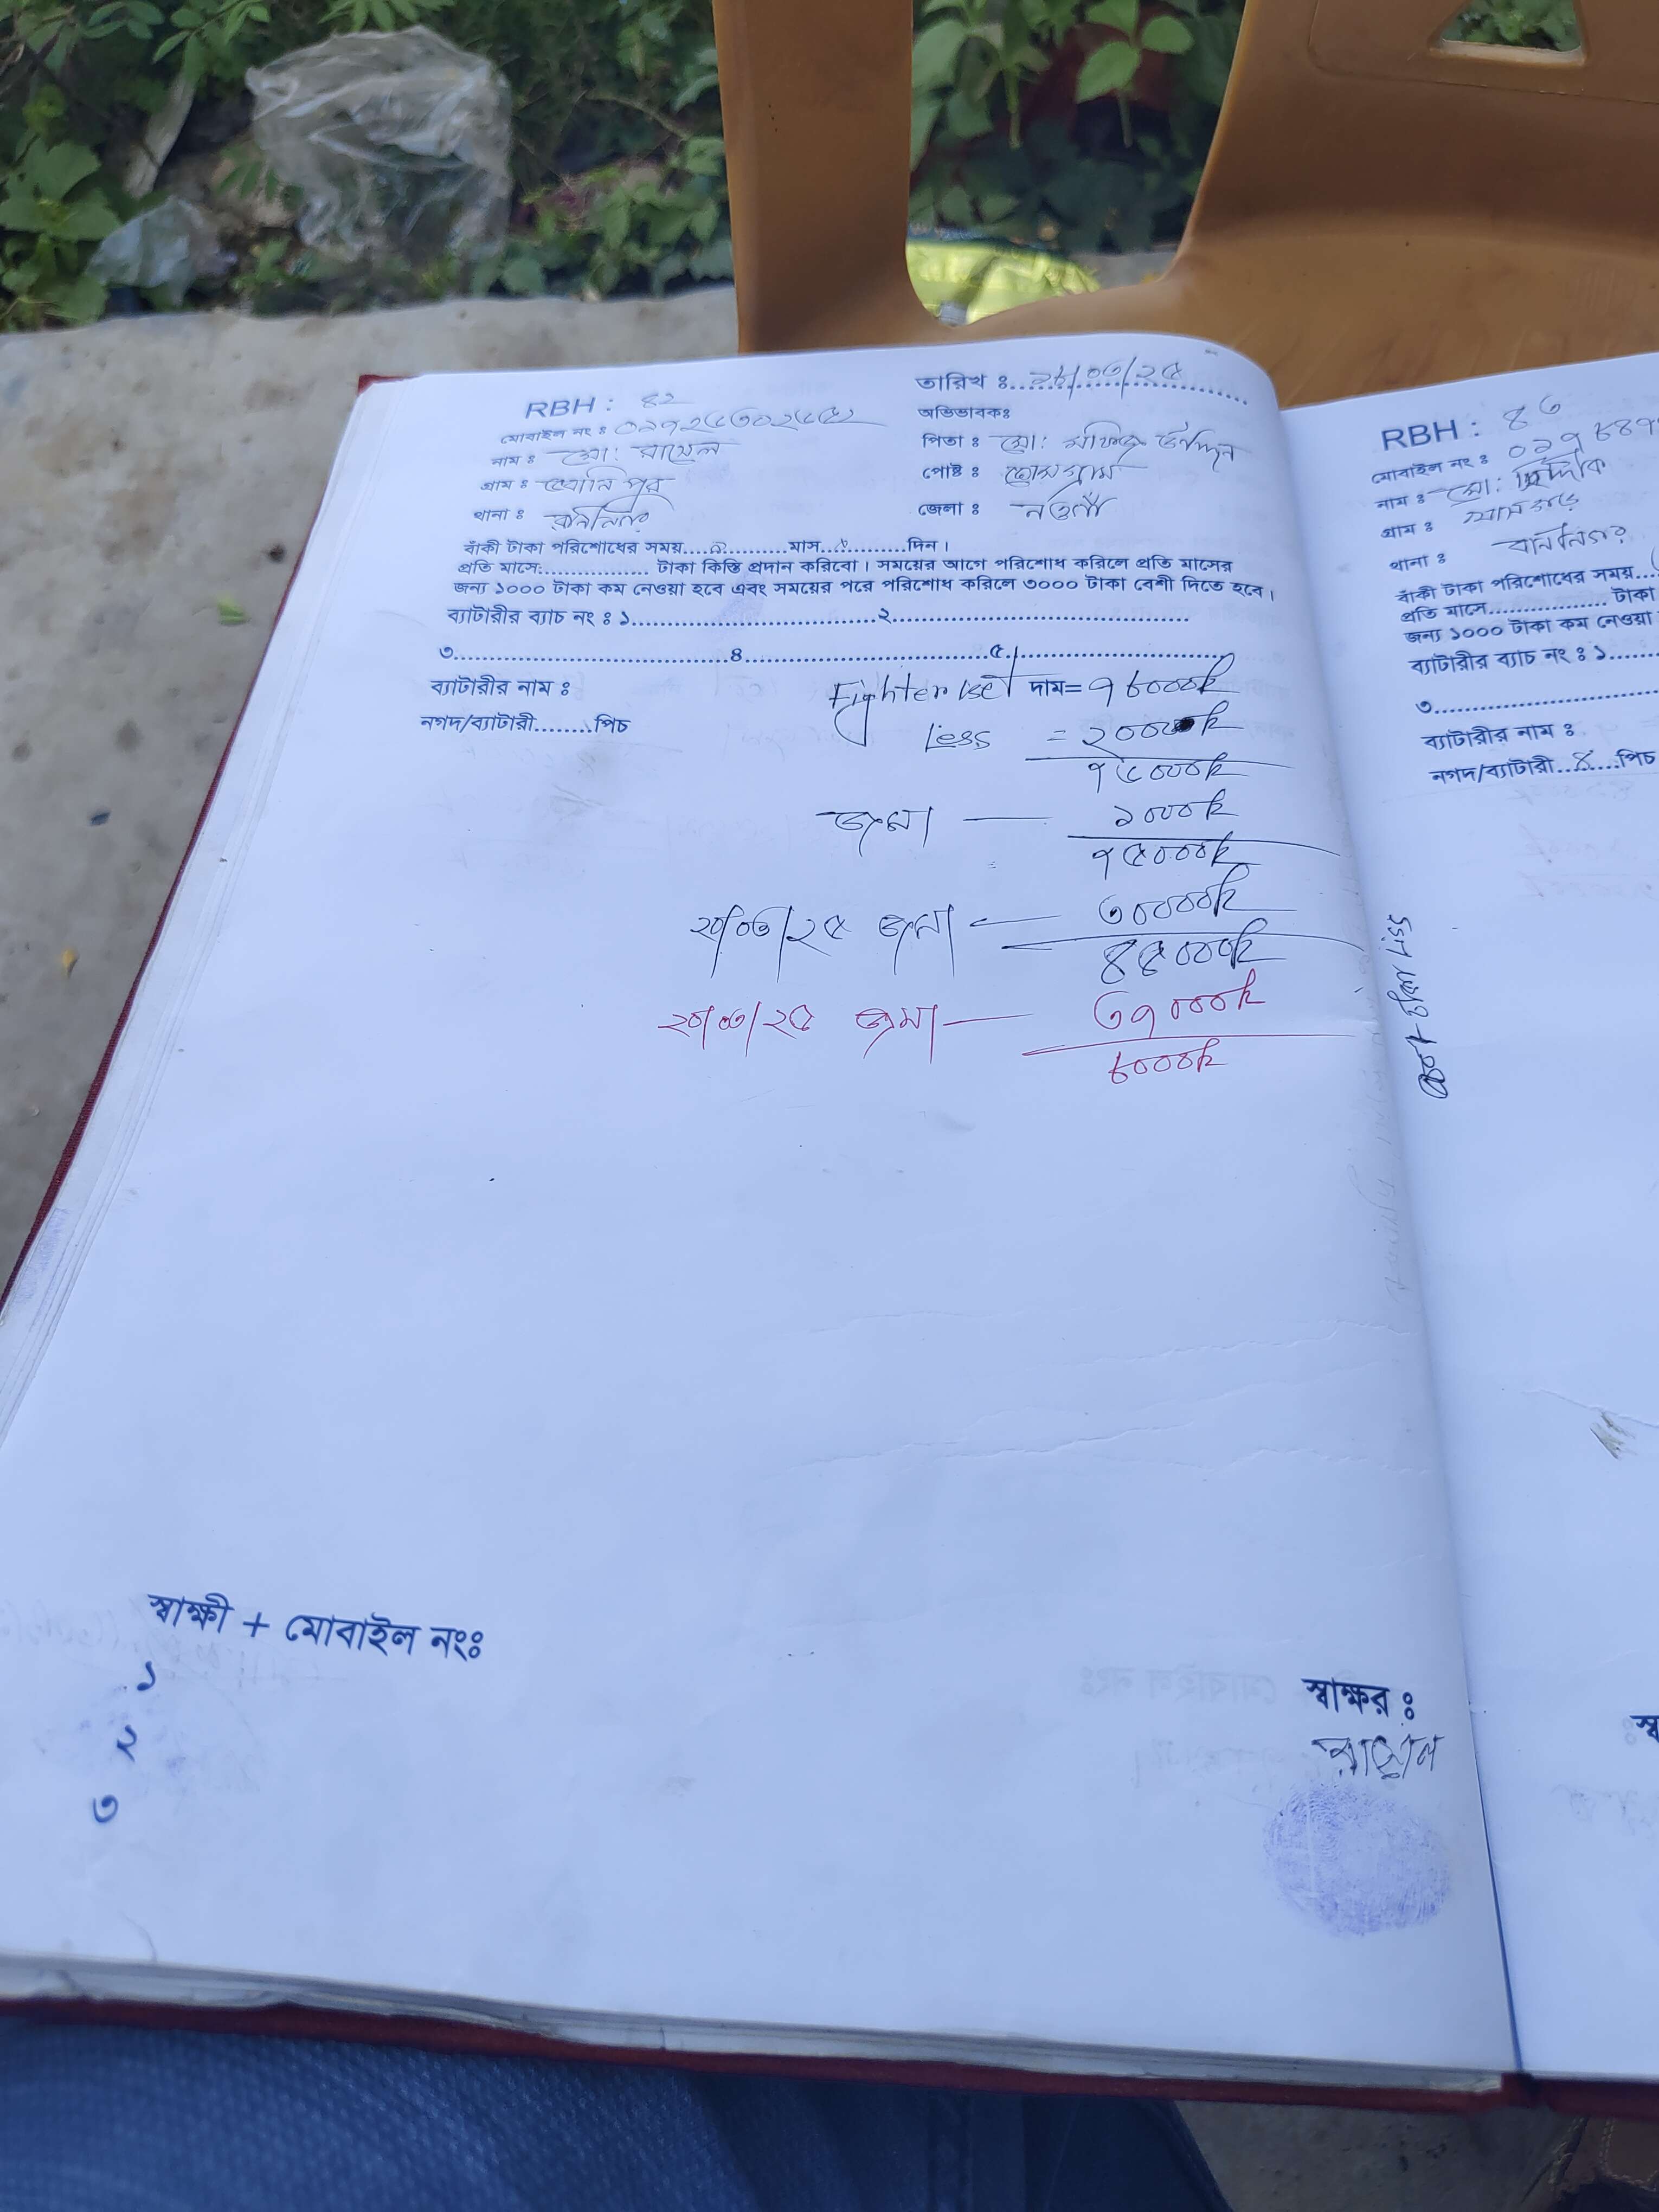 RBH : ৪২
তারিখ ঃ.../০৩/২৫
মোবাইল নং ঃ
অভিভাবকঃ
নাম ঃ মো: রাসেল
পিতা ঃ মো: উদ্দিন
গ্রাম ঃ পুর
পোষ্ট ঃ
থানা ঃ রানিনগর
জেলা ঃ নওগাঁ
বাঁকী টাকা পরিশোধের সময়.............মাস.............দিন।
প্রতি মাসে:................. টাকা কিস্তি প্রদান করিবো। সময়ের আগে পরিশোধ করিলে প্রতি মাসের
জন্য ১০০০ টাকা কম নেওয়া হবে এবং সময়ের পরে পরিশোধ করিলে ৩০০০ টাকা বেশী দিতে হবে।
ব্যাটারীর ব্যাচ নং ঃ ১........................................২................................................
৩.............................................৪..........................................৫....................................
ব্যাটারীর নাম ঃ Fighter 1set দাম= ৭৮০০০৳
নগদ/ব্যাটারী........পিচ
Less = ২০০০৳
৭৬০০০৳
জমা — ১০০০৳
৭৫০০০৳
২০/০৩/২৫ জমা — ৩০০০০৳
৪৫০০০৳
২০/০৩/২৫ জমা — ৩৭০০০৳
৮০০০৳
স্বাক্ষী + মোবাইল নংঃ
১
২
৩
স্বাক্ষর ঃ
রাসেল
RBH : ৪৩
মোবাইল নং ঃ
নাম ঃ মো: ছিদ্দিক
গ্রাম ঃ
থানা ঃ রানিনগর
বাঁকী টাকা পরিশোধের সময়....
প্রতি মাসে................. টাকা
জন্য ১০০০ টাকা কম নেওয়া
ব্যাটারীর ব্যাচ নং ঃ ১.......
৩...............................
ব্যাটারীর নাম ঃ
নগদ/ব্যাটারী..৪....পিচ